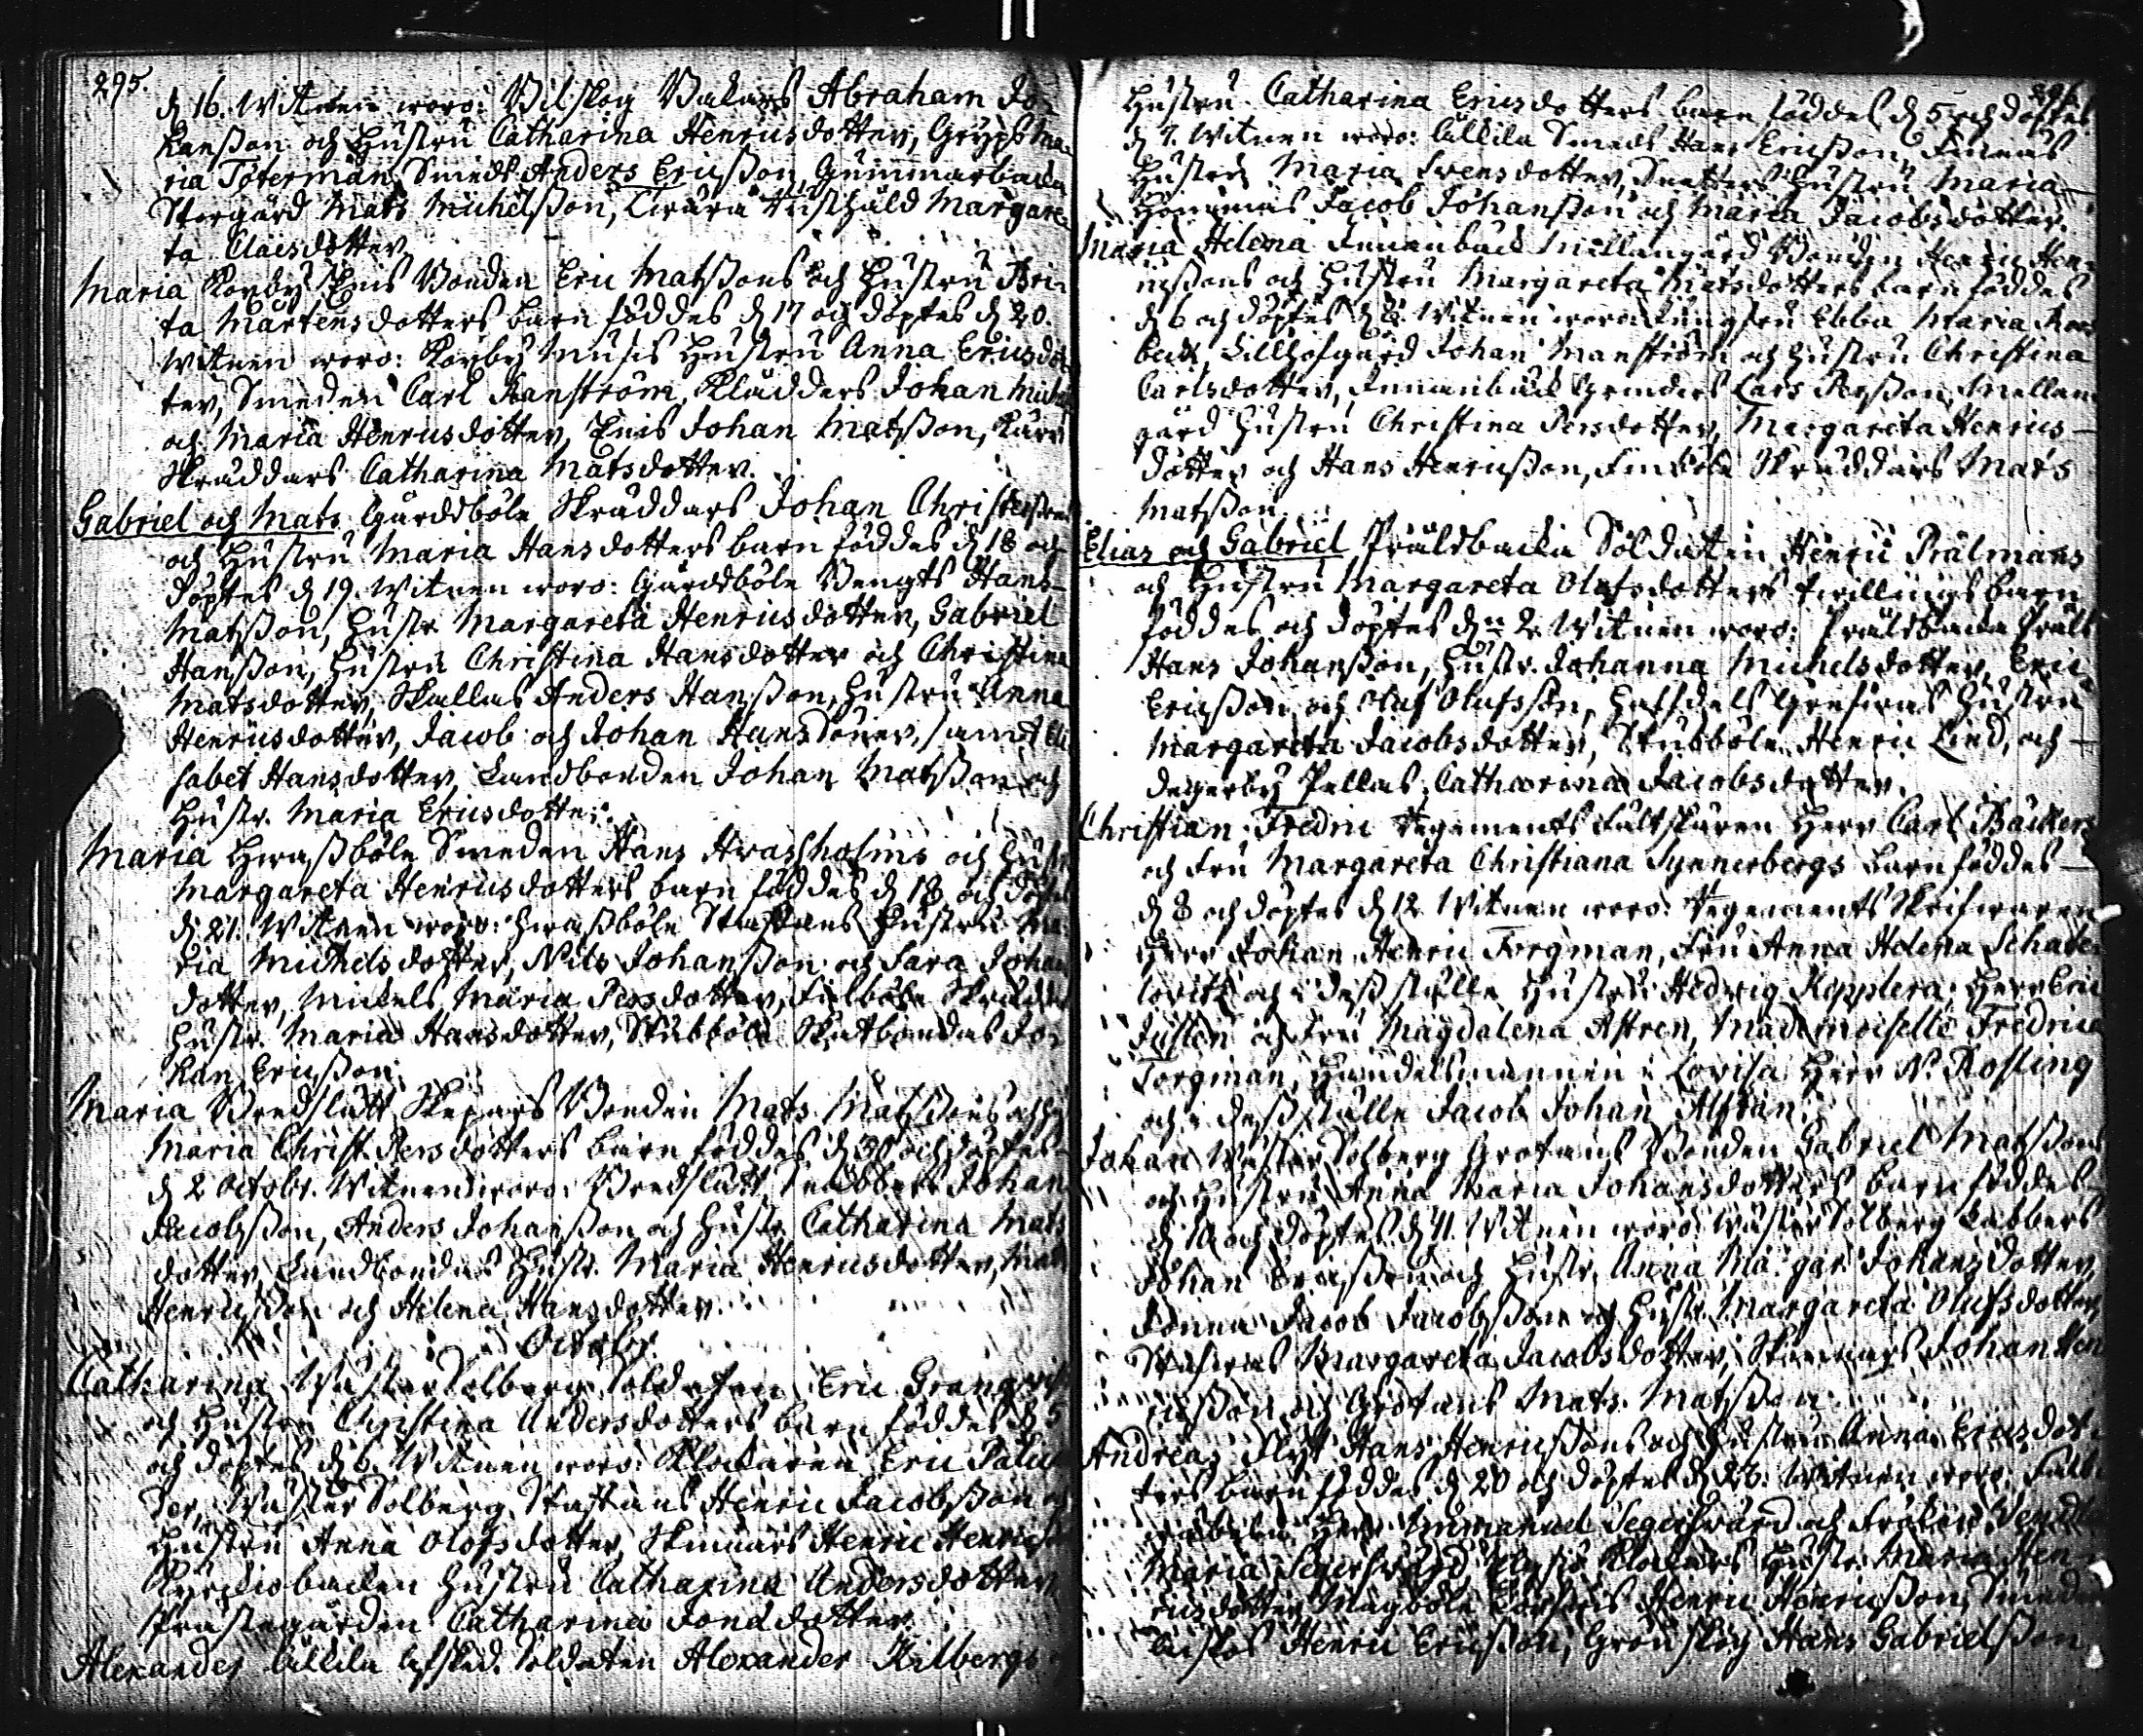 295.
d. 16. Witnen woro: Bilskog Bakars Abraham Jo-
hansson och Hustru Catharina Henricsdotter, Gryps Ma-
ria Töterman, Smeds Anders Ericsson, Gummarbacka
Storgård Mats Michelsson, Margare-
ta Claesdotter.
Maria Korby Enis Bonden Eric Matssons och Hustru Bri-
ta Mårtensdotters barn föddes d. 17 och döptes d. 20.
Witnen woro: Korby Musis Hustru Anna Ericsdot-
ter, Smeden Carl Ranström, Kladders Johan Mich
och Maria Henricsdotter, Enis Johan Matsson,
Skräddars Catharina Matsdotter.
Gabriel och Mats Gårddböle Skräddars Johan Christerssons
och Hustru Maria Hansdotters barn föddes d. 18 och
döptes d. 19. Witnen woro: Gårddböle Bengts Hans
Matsson, Hustr. Margareta Henricsdotter, Gabriel
Hansson, Hustru Christina Hansdotter och Christina
Matsdotter, Skallas Anders Hansson, Hustru Anna
Henricsdotter, Jacob och Johan Hanssöner, samt Eli
sabet Hansdotter, Landbonden Johan Matsson och
Hustr. Maria Ericsdotter.
Maria Hwassböle Smeden Hans Hwassholms och Hustr.
Margareta Henricsdotters barn föddes d. 18 och döptes
d. 21. Witnen woro: Hwassböle Staffans Hustru Ma-
ria Michelsdotter, Nils Johansson och Sara Johans
dotter, Mickels Maria Persdotter, Skräddars
Hustr. Maria Hansdotter, Stubböle Skatbondas Jo-
han Ericsson.
Maria Bredslätt Skepars Bonden Mats Matssons och
Maria Christ. Persdotters barn föddes d. 30 och döptes
d. 2 Octobr. Witnen woro: Bredslätt Snabbers Johan
Jacobsson, Anders Johansson och Hustr. Catharina Mats
dotter, Landbondas Hustr. Maria Henricsdotter, Mats
Henricsson och Helena Hansdotter.
October.
Catharina Wäster Solberg Soldaten Eric Granqvist
och Hustru Christina Andersdotters barn föddes d. 5
och döptes d. 6. Witnen woro: Klockaren Eric
Wäster Solberg Staffans Henric Jacobsson och
Hustru Anna Olofsdotter, Skinnars Henric Henricss
Kyrckiobacken Hustru Catharina Andersdotter
Prästegården Catharina dotter.
Alexander Lillila Afsked. Soldaten Alexander Kilbergs
Hustru Catharina Ericsdotters barn föddes d. 5 och döptes
d. 7. Witnen woro: Lillila Smeds Hans Ericsson,
Hustru Maria Svensdotter, Hustru Maria
Jacob Johansson och Maria Jacobsdotter.
Maria Helena Mellangård Bonden Henric Hen-
ricssons och Hustru Margareta Matsdotters barn föddes
d. 6 och döptes d. 8. Witnen woro: Jungfru Ebba Maria
Lillhofgård Johan Manström och Hustru Christina
Carlsdotter, Lars Mellan
gård Hustru Christina Persdotter, Margareta Henrics
dotter och Hans Henricsson, Skräddars Mats
Matsson.
Elias och Gabriel Präldbacka Soldaten Henric Prälmans
och Hustru Margareta Olofsdotters twillingsbarn
föddes och döptes d. 2. Witnen woro: Präldbacka Präll
Hans Johansson, Hustr. Johanna Michelsdotter, Eric
Ericsson och Olof Olofsson, Hustru
Margareta Jacobsdotter, Stubböle Henric Lind, och
Degerby Pellas Catharina Jacobsdotter.
Christian Fredric Regements Fältskären Herr Carl Bäckers
och Fru Margareta Christiana Synnerbergs barn föddes
d. 8 och döptes d. 12. Witnen woro: Regements Skrifwaren
Herr Johan Henric Forgman, Fru Anna Helena Schate
lovitz och i dess ställe Hustru Hedvig Kepplera, Herr Eric
Juslen och Fru Magdalena Astren, Mademoiselle Fredrica
Forgman, Handelsmannen i Lovisa Herr N. Rosling
och i dess ställe Jacob Johan Alftan.
Johan Wäster Solberg Grotans Bonden Gabriel Matssons
och Hustru Anna Maria Johansdotters barn föddes
d. 10 och döptes d. 11. Witnen woro: Wäster Solberg Labbers
Johan Ericsson och Hustr. Anna Margar. Johansdotter,
Jacob Jacobsson och Hustr. Margareta Olofsdotter,
Margareta Jacobsdotter, Skinnars Johan Hen
ricsson och Grotans Mats Matsson.
Andreas Flyt Hans Henricssons och Hustru Anna Ericsdot-
ters barn föddes d. 20 och döptes d. 23. Witnen woro:
Herr Immanuel Segersvärd och Fröken
Maria Segersvärd, Klockars Hustr. Maria Hen
ricsdotter, Maybole Henric Henricsson,
Henric Ericsson, Grönskog Hans Gabrielsson